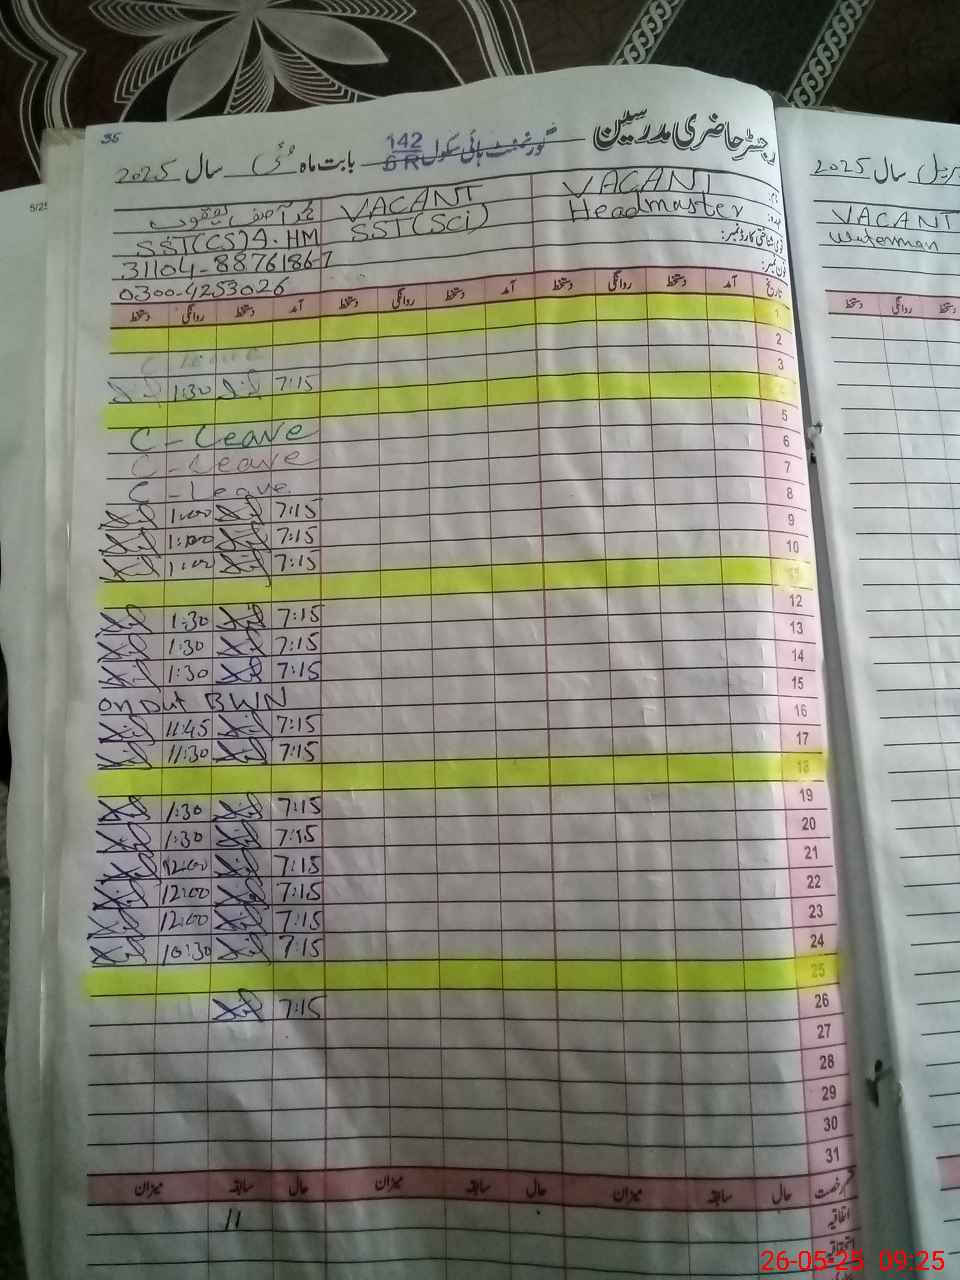 35
رجسٹر حاضری مدرسین گورنمنٹ ہائی سکول 142/6R بابت ماہ مئی سال 2025
5/25
اپریل سال 2025
نام: VACANT VACANT محمد آصف یعقوب
عہدہ: Headmaster SST(Sci) SST(CS)A.HM
قومی شناختی کارڈ نمبر: 31104-8876186-7
فون نمبر: 0300-4253026
VACANT
Waterman
تاریخ آمد دستخط روانگی دستخط آمد دستخط روانگی دستخط آمد دستخط روانگی دستخط
روانگی دستخط
1
2 C-Leave
3 7:15 1:30
5
6 C-Leave
7 C-Leave
8 C-Leave
9 7:15 1:00
10 7:15 1:00
7:15 1:00
12
13 7:15 1:30
14 7:15 1:30
15 7:15 1:30
16 on out BWN
17 7:15 11:45
7:15 11:30
18
19 7:15 1:30
20 7:15 1:30
21 7:15 12:00
22 7:15 12:00
23 7:15 12:00
24 7:15 10:30
25
26 7:15
27
28
29
30
31
قسم رخصت حال سابقہ میزان حال سابقہ میزان حال سابقہ میزان
اتفاقیہ 11
استحقاقیہ
26-05-25 09:25